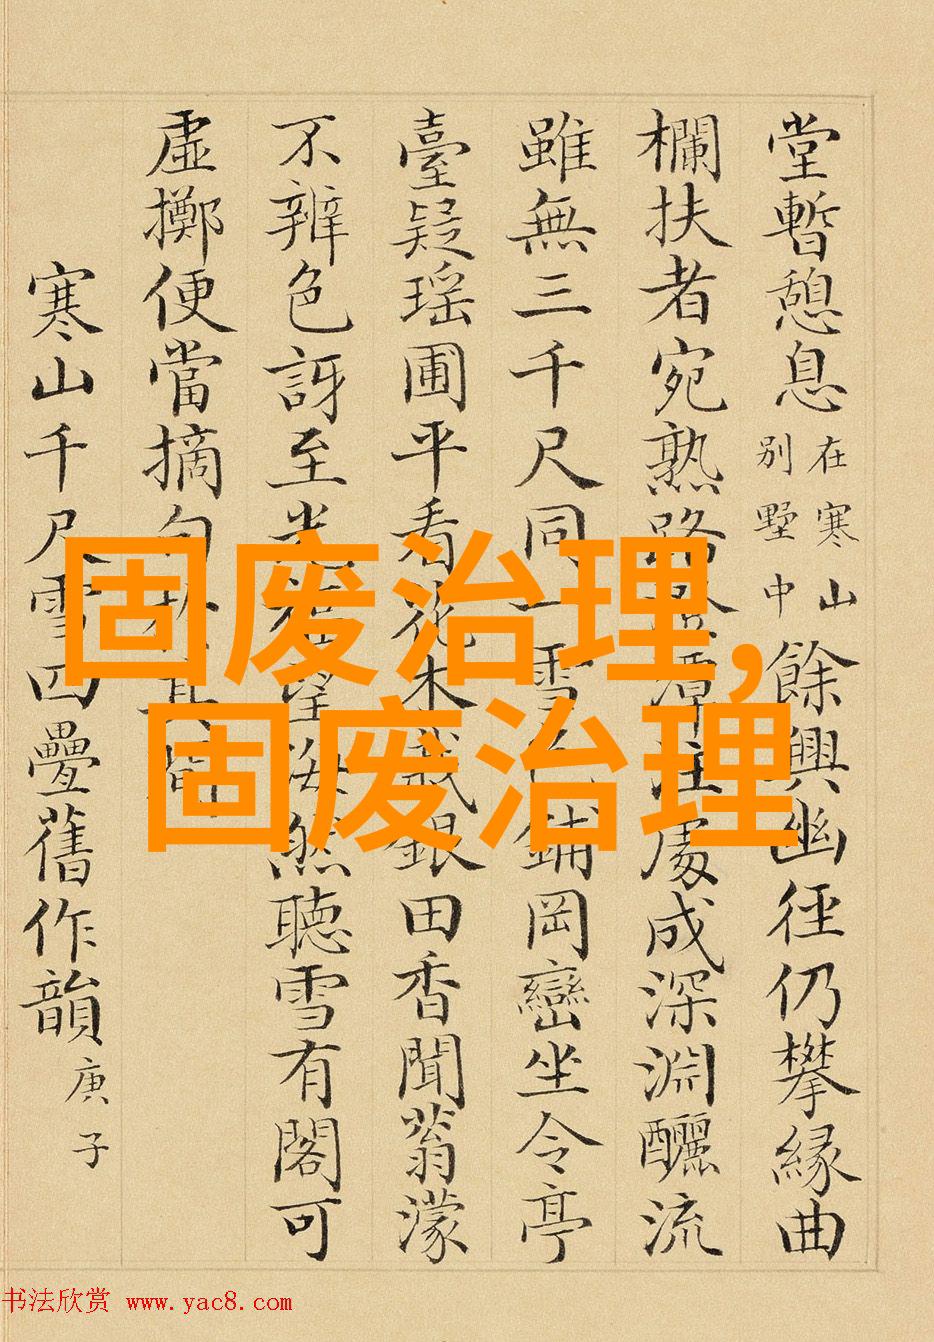 堂暫憩息在寒山別墅中餘興幽徑仍攀緣曲
欄扶者宛熟路潭注處成深淵釃流
雖無三千尺同一雪鋪岡巒坐令亭
臺疑瑤圃平看花木栽銀田香聞蓊濛
不辨色訝至光望然聽雪有閣可
虛擲便當摘句其間
寒山千尺雪四疊舊作韻庚子
固废治理,
固废治理
书法欣赏 www.yac8.com